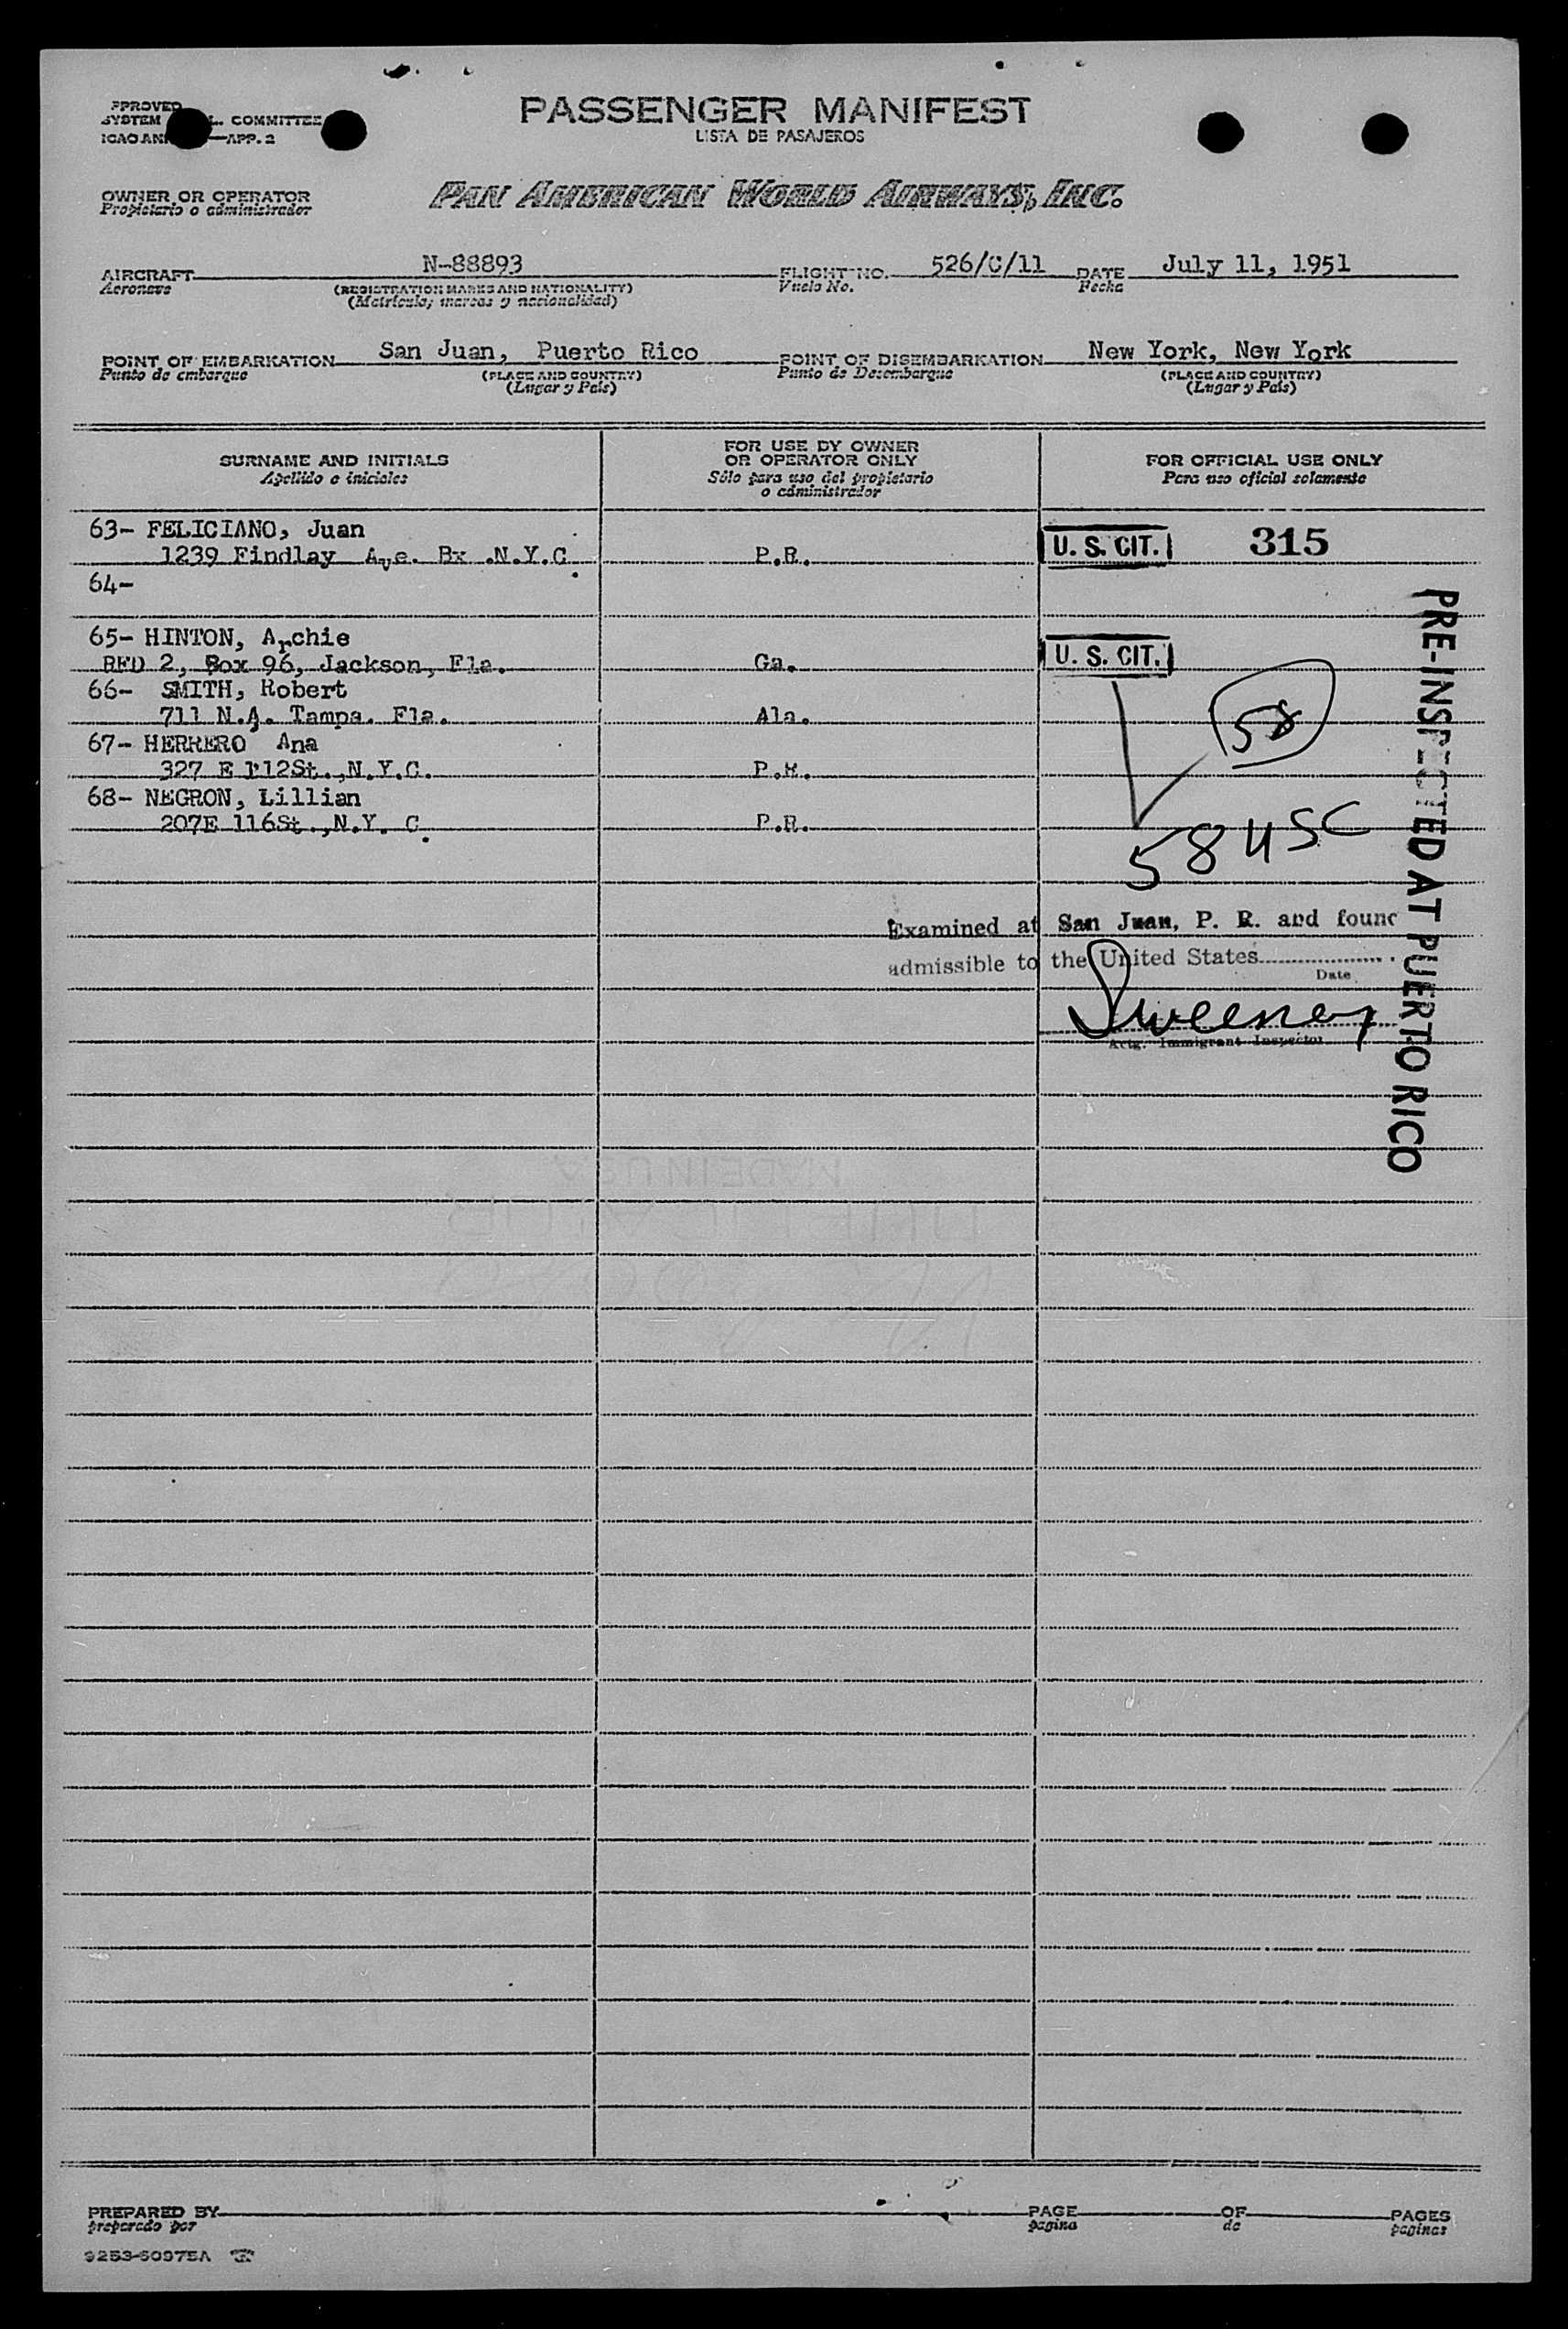 PPROVED
SYSTEM L. COMMITTEE
ICAO ANN —APP. 2
PASSENGER MANIFEST
LISTA DE PASAJEROS
OWNER OR OPERATOR
Propietario o administrador
PAN AMERICAN WORLD AIRWAYS, INC.
AIRCRAFT N-88893 FLIGHT NO. 526/C/11 DATE July 11, 1951
Aeronave (REGISTRATION MARKS AND NATIONALITY) Vuelo No. Fecha
(Matrícula, marcas y nacionalidad)
POINT OF EMBARKATION San Juan, Puerto Rico POINT OF DISEMBARKATION New York, New York
Punto de embarque (PLACE AND COUNTRY) Punto de Desembarque (PLACE AND COUNTRY)
(Lugar y País) (Lugar y País)
SURNAME AND INITIALS
Apellido e iniciales
FOR USE BY OWNER
OR OPERATOR ONLY
Sólo para uso del propietario
o administrador
FOR OFFICIAL USE ONLY
Para uso oficial solamente
63- FELICIANO, Juan
1239 Findlay Ave. Bx .N.Y.C. P.R. U. S. CIT. 315
64-
65- HINTON, Archie
RFD 2, Box 96, Jackson, Fla. Ga. U. S. CIT.
66- SMITH, Robert
711 N.A. Tampa. Fla. Ala. 58
67- HERRERO, Ana
327 E 112St.,N.Y.C. P.R.
68- NEGRON, Lillian
207E 116St.,N.Y. C. P.R.
58 USC
PRE-INSPECTED AT PUERTO RICO
Examined at San Juan, P. R. and found
admissible to the United States
Date
Sweeney
Actg. Immigrant Inspector
MADE IN USA
PREPARED BY PAGE OF PAGES
preparado por pagina de paginas
9253-50975A